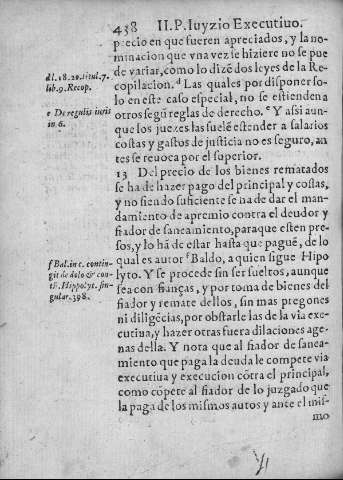 438 II. P. Iuyzio Executiuo.
precio en que fueren apreciados, y la no-
minacion que vna vez se hiziere no se pue
de variar, como lo dizē dos leyes de la Re
copilacion.ᵈ Las quales por disponer so-
lo en este caso especial, no se estienden a
otros segū reglas de derecho.ᵉ Y assi aun-
que los juezes las suelē estender a salarios
costas y gastos de justicia no es seguro, an
tes se reuoca por el superior.
13 Del precio de los bienes rematados
se ha de hazer pago del principal y costas,
y no siendo suficiente se ha de dar el man-
damiento de apremio contra el deudor y
fiador de saneamiento, para que esten pre-
sos, y lo hā de estar hasta que paguē, de lo
qual es autor ᶠ Baldo, a quien sigue Hipo
lyto. Y se procede sin ser sueltos, aunque
sea con fianças, y por toma de bienes del
fiador y remate dellos, sin mas pregones
ni diligēcias, por obstarle las de la via exe-
cutiua, y hazer otras fuera dilaciones age-
nas della. Y nota que al fiador de sanea-
miento que paga la deuda le compete via
executiua y execucion cōtra el principal,
como cōpete al fiador de lo juzgado que
la paga de los mismos autos y ante el mis-
mo
d l. 18. 20. titul. 7.
lib. 9. Recop.
e De regulis iuris
in 6.
f Bal. in c. contin-
git de dolo & con-
tu. Hippolyt. sin-
gular. 398.